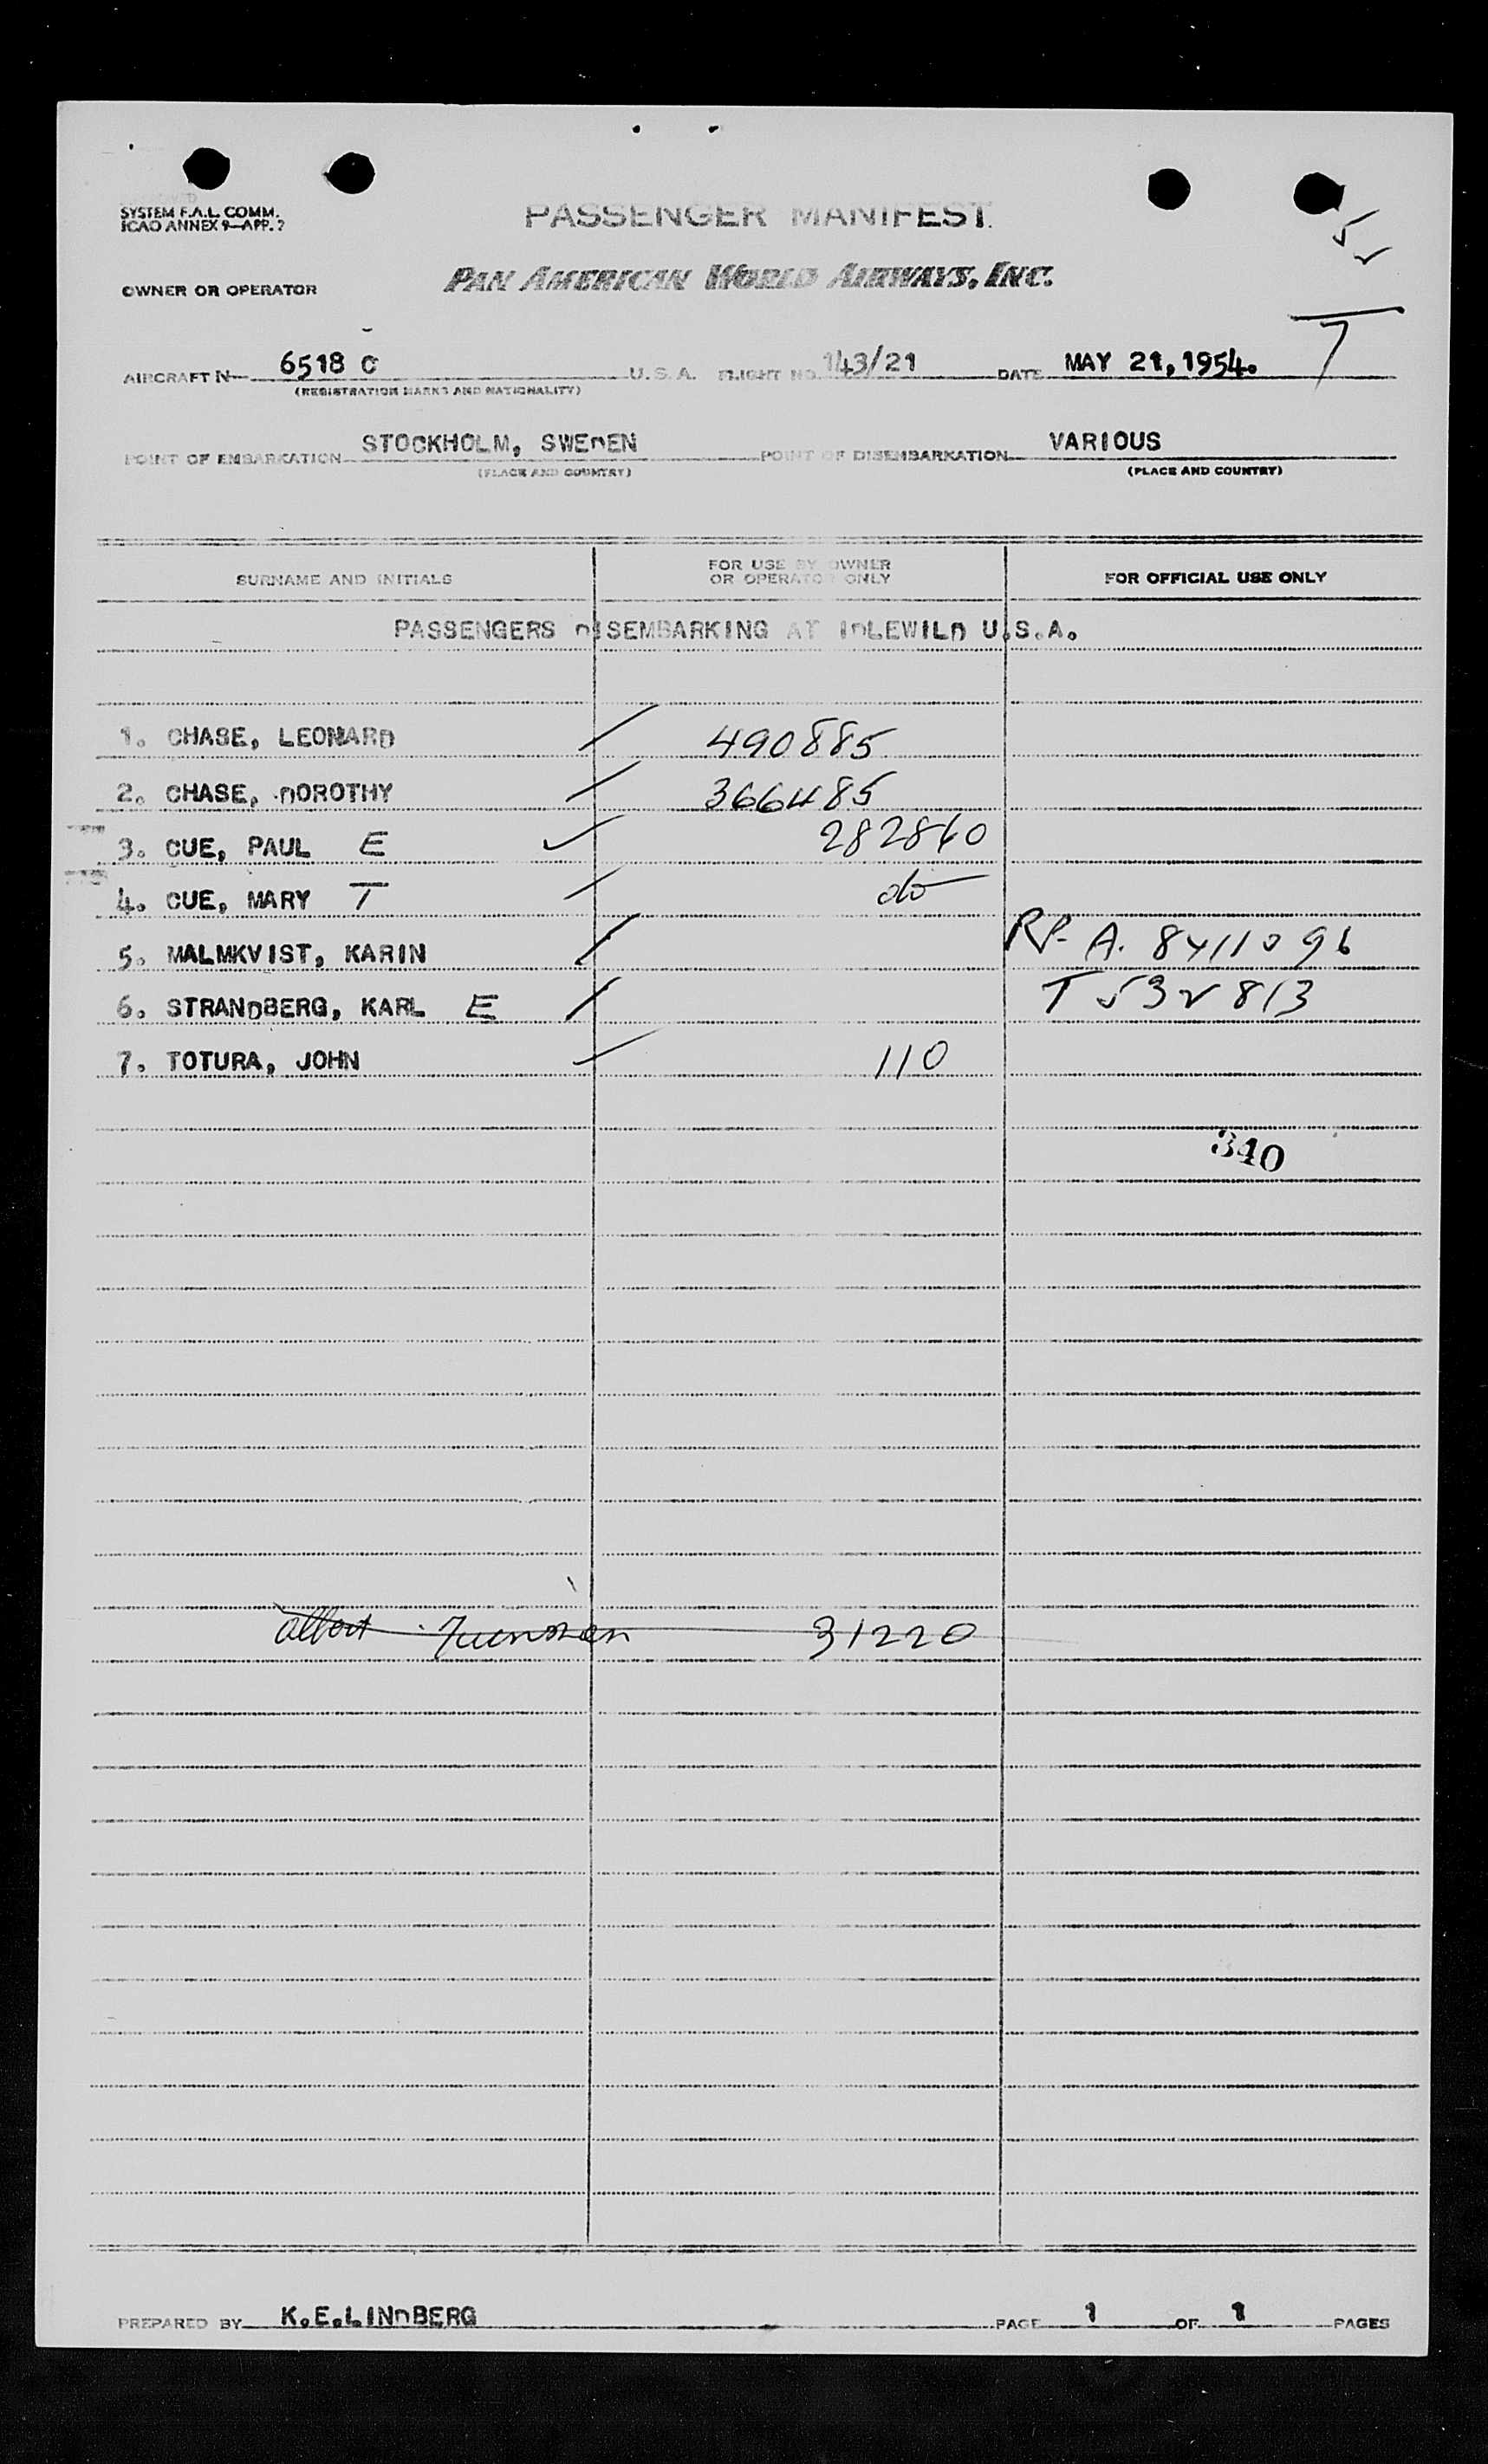 SYSTEM F.A.L. COMM.
ICAO ANNEX 9—APP. 2
PASSENGER MANIFEST
OWNER OR OPERATOR PAN AMERICAN WORLD AIRWAYS, INC.
5
2
7
AIRCRAFT N 6518 C U.S.A. FLIGHT NO. 143/21 DATE MAY 21, 1954.
(REGISTRATION MARKS AND NATIONALITY)
POINT OF EMBARKATION STOCKHOLM, SWEDEN POINT OF DISEMBARKATION VARIOUS
(PLACE AND COUNTRY) (PLACE AND COUNTRY)
SURNAME AND INITIALS FOR USE BY OWNER OR OPERATOR ONLY FOR OFFICIAL USE ONLY
PASSENGERS DISEMBARKING AT IDLEWILD U.S.A.
1. CHASE, LEONARD 490885
2. CHASE, DOROTHY 366485
3. CUE, PAUL E 282860
4. CUE, MARY T do
5. MALMKVIST, KARIN RP- A. 8411096
6. STRANDBERG, KARL E T 532813
7. TOTURA, JOHN 110
340
Albert 31220
PREPARED BY K.E.LINDBERG PAGE 1 OF 1 PAGES